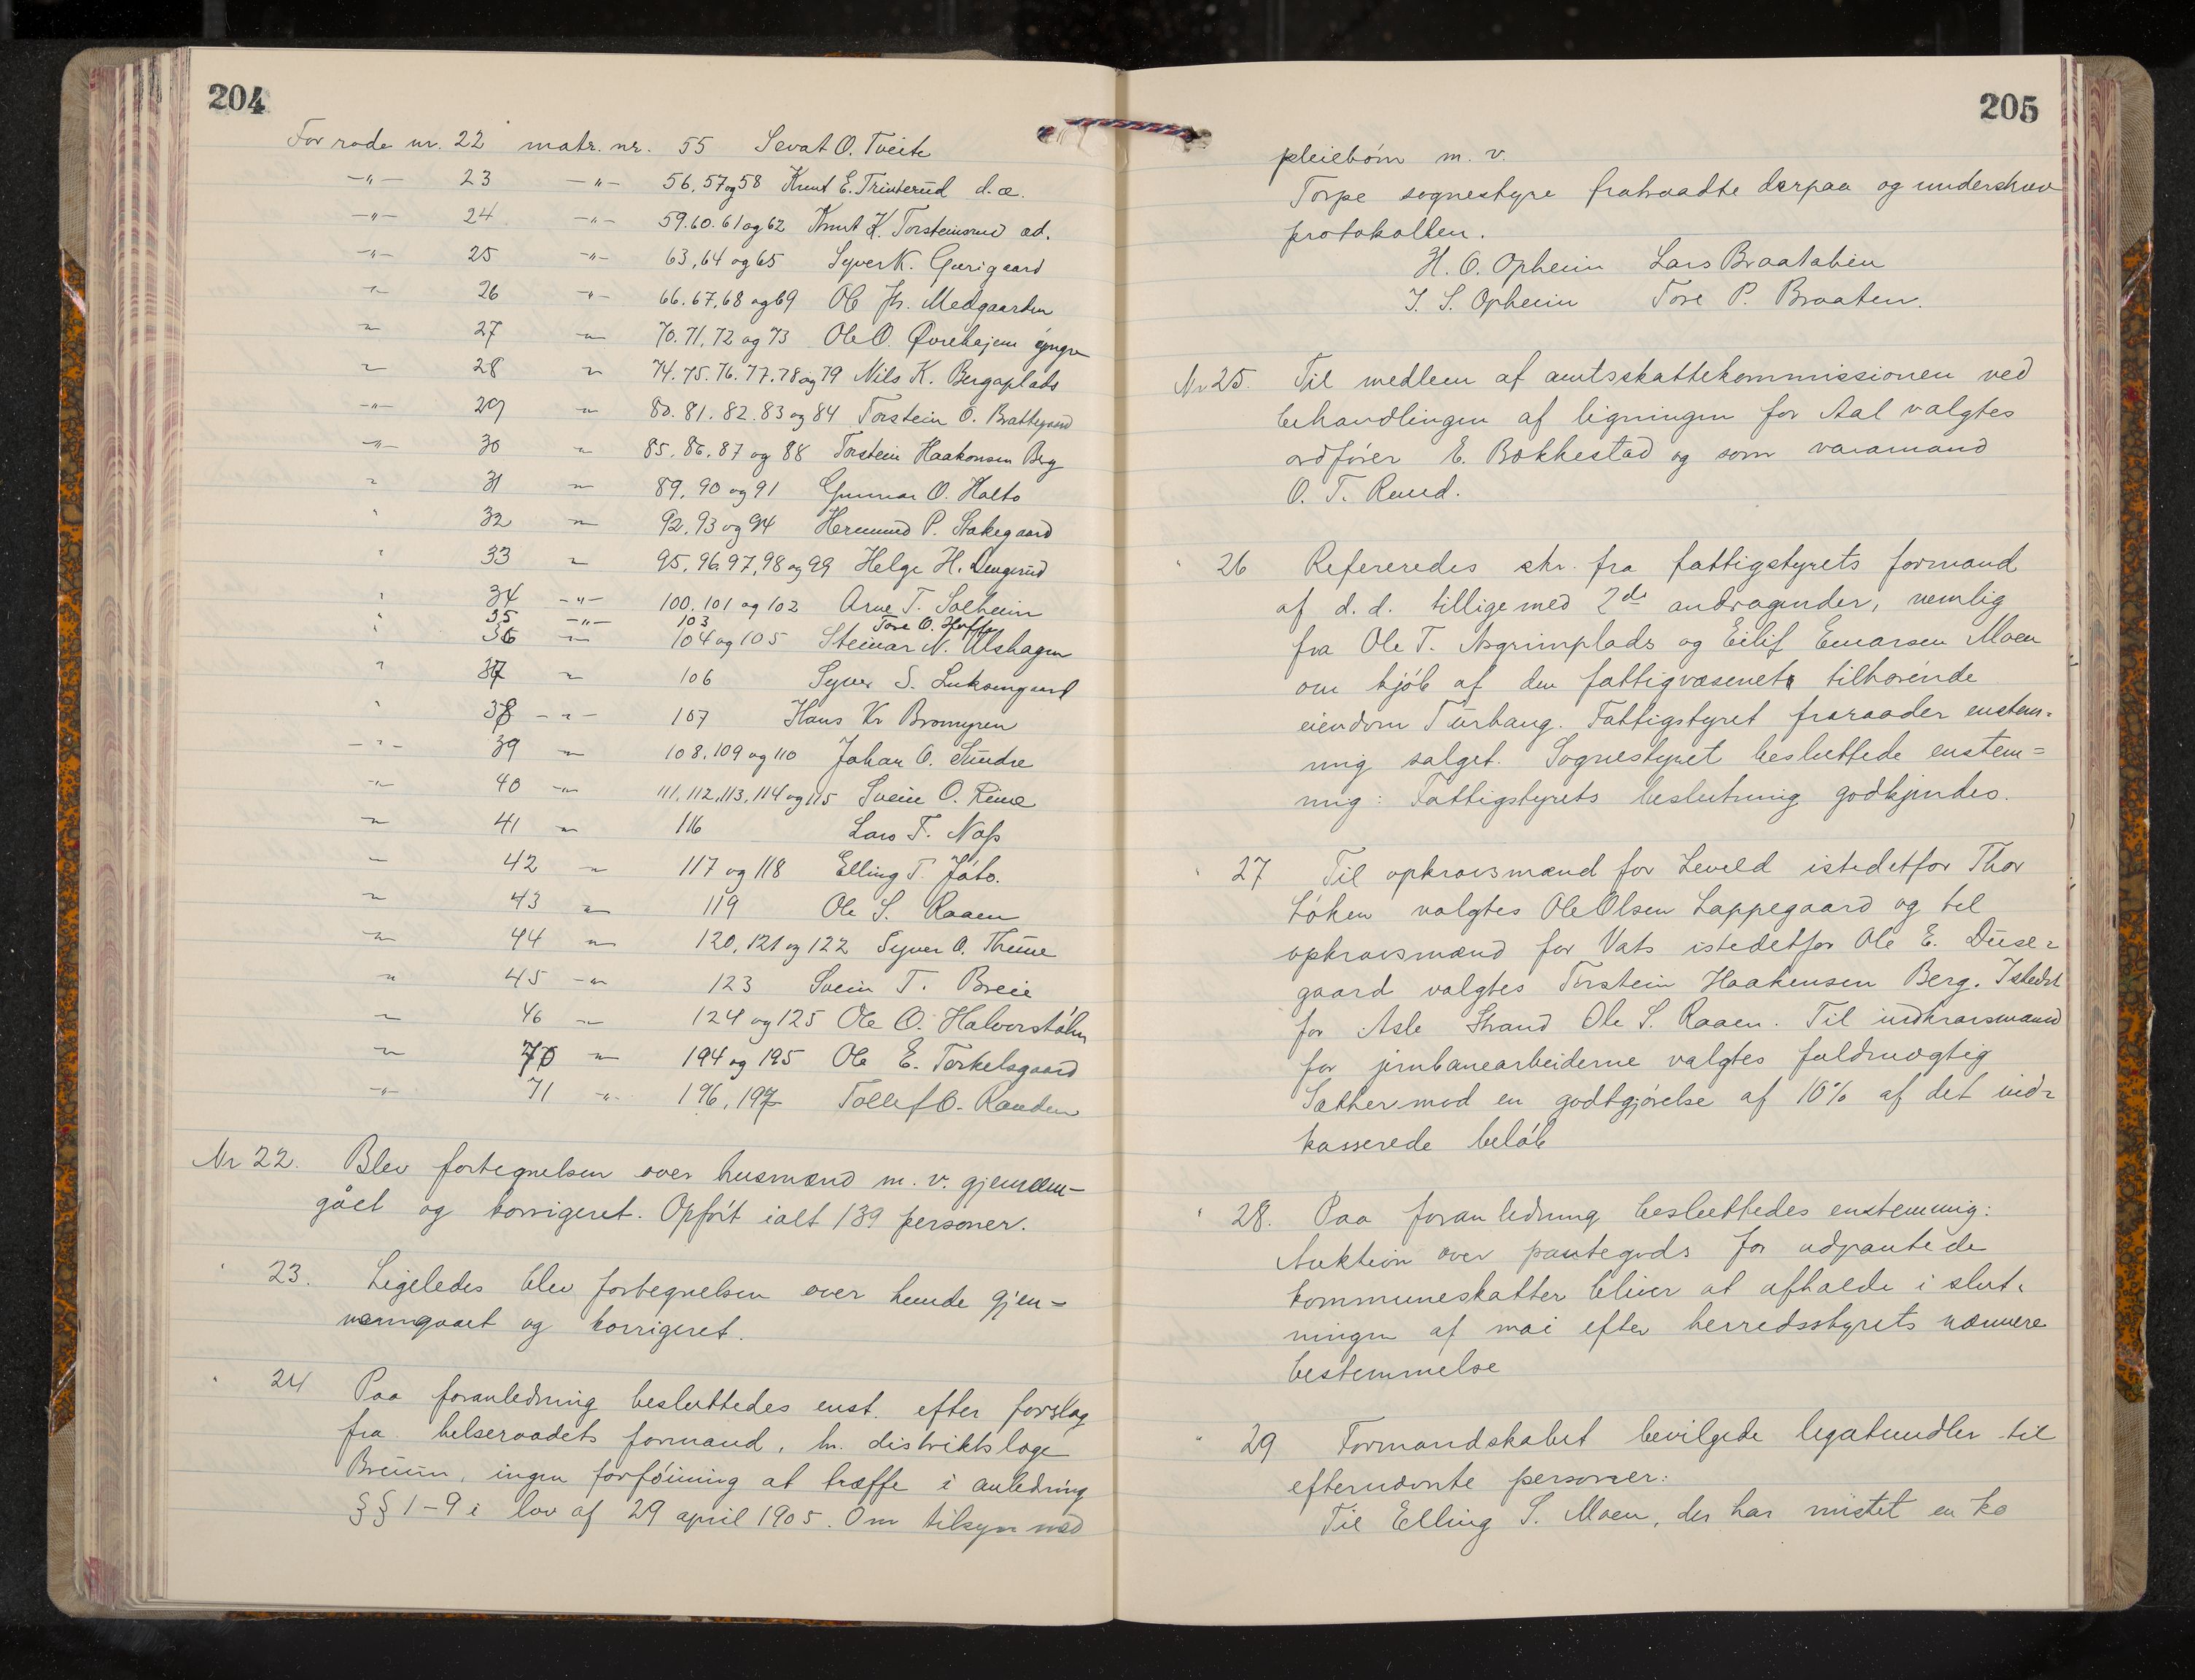 204
For rode nr. 22 matr. nr. 55 Sevat O. Tveite
-"- 23 -"- 56, 57 og 58 Knut E. Trinterud d.æ.
-"- 24 -"- 59. 60. 61 og 62 Knut K. Torsteinsrud æd.
-"- 25 -"- 63, 64 og 65 Syver K. Gurigaard
-"- 26 -"- 66. 67, 68 og 69 Ole Medgaarden
-"- 27 -"- 70. 71, 72 og 73 Ole O. Øvrehajem yngre
-"- 28 -"- 74. 75. 76. 77. 78 og 79 Nils K. Bergaplads
-"- 29 -"- 80. 81. 82. 83 og 84 Torstein O. Brattegaard
-"- 30 -"- 85. 86. 87 og 88 Torstein Haakonsen Berg
" 31 -"- 89, 90 og 91 Gunnar O. Halto
" 32 -"- 92, 93 og 94 Hermund P. Stakegaard
" 33 -"- 95, 96. 97, 98 og 99 Helge H. Dengerud
" 34 -"- 100. 101 og 102 Arne T. Solheim
" 35 -"- 103 Tore O. Hoff
" 36 -"- 104 og 105 Steinar N. Ulshagen
" 37 -"- 106 Syver S. Luksengaard
" 38 -"- 107 Hans Kr Bromyren
-"- 39 -"- 108, 109 og 110 Johan O. Sundre
-"- 40 -"- 111, 112, 113, 114 og 115 Svein O. Reine
-"- 41 -"- 116 Lars T. Næss
-"- 42 -"- 117 og 118 Elling T. Játo.
-"- 43 -"- 119 Ole S. Raaen
-"- 44 -"- 120, 121 og 122 Syver O. Thune
-"- 45 -"- 123 Svein T. Breie
-"- 46 -"- 124 og 125 Ole O. Halvorstølen
-"- 70 -"- 194 og 195 Ole E. Torkelsgaard
-"- 71 -"- 196, 197 Tollef O. Rauden
Nr 22. Blev fortegnelsen over husmænd m. v. gjennem-
gået og korrigeret. Opført ialt 139 personer.
" 23. Ligeledes blev fortegnelsen over hunde gjen-
nemgaaet og korrigeret.
" 24 Paa foranledning besluttedes enst. efter forslag
fra helseraadets formand, hr. distriktslæge
Bruun, ingen forføining at træffe i anledning
§§ 1-9 i lov af 29 april 1905. Om tilsyn med
205
pleiebørn m. v.
Torpe sognestyre fratraadte derpaa og underskrev
protokollen.
H. O. Opheim Lars Braatalien
T. S. Opheim Tore P. Braaten.
Nr 25. Til medlem af amtsskattekommissionen ved
behandlingen af ligningen for Aal valgtes
ordfører E. Bøkkestad og som varamand
O. T. Ruud.
" 26 Refereredes skr. fra fattigstyrets formand
af d. d. tilligemed 2de andragender, nemlig
fra Ole T. Asgrimplads og Eilif Einarsen Moen
om kjøb af den fattigvæsenet tilhørende
eiendom Turhaug. Fattigstyret fraraader enstem-
mig salget. Sognestyret besluttede enstem=
mig: Fattigstyrets beslutning godkjendes.
" 27 Til opkrævsmænd for Leveld istedetfor Thor
Løken valgtes Ole Olsen Lappegaard og til
opkrævsmænd for Vats istedetfor Ole E. Duse-
gaard valgtes Torstein Haakensen Berg. Istedet
for Asle Strand Ole S. Raaen. Til indkrævsmænd
for jernbanearbeiderne valgtes fuldmægtig
Sæther mod en godtgjørelse af 10% af det ind-
kasserede beløb
" 28. Paa foranledning besluttedes enstemmig:
Auktion over pantegods for udpantede
kommuneskatter bliver at afholde i slut-
ningen af mai efter herredsstyrets nærmere
bestemmelse
" 29 Formandskabet bevilgede legatmidler til
efternævnte personer:
Til Elling S. Moen, der har mistet en ko